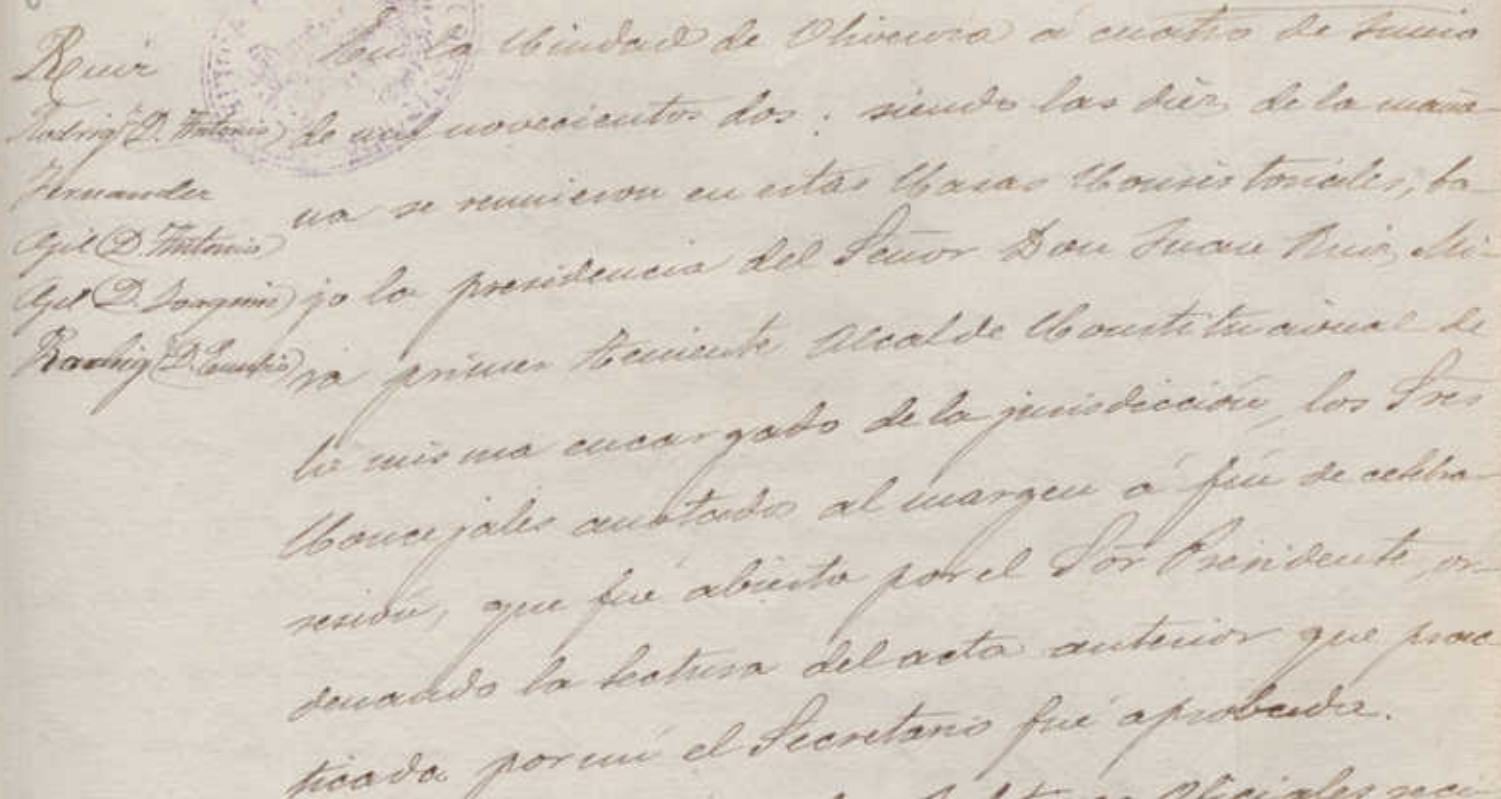 Ruiz
Rodrig.z (D. Antonio)
Fernandez
Gil (D. Antonio)
Gil (D. Joaquin)
Rodrig.z (D. Emilio)
En la Ciudad de Olivenza a cuatro de Junio
de mil novecientos dos; siendo las diez de la maña-
na se reunieron en estas Casas Consistoriales, ba-
jo la presidencia del Señor Don Juan Ruiz Mi-
ra primer teniente Alcalde Constitucional de
la misma encargado de la jurisdicción, los Sres
Concejales anotados al margen á fin de celebrar
sesión, que fué abierta por el Sor Presidente, or-
denando la lectura del acta anterior que prac
ticada por mi el Secretario fué aprobada.
Oficiales reci-